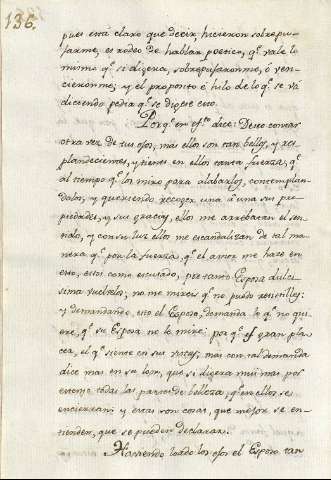 136.
pues está claro que decir, hicieron sobrepu-
jarme, es rodeo de hablar poetico, qᵉ vale lo
mismo qᵉ si digera, sobrepujaronme, ó ven-
cieronme; y el proposito è hilo de lo qᵉ se va
diciendo pedia qᵉ se digese esto.
Porqᵉ en efᵗᵒ dice: Deseo contar
otra vez de tus ojos, mas ellos son tan bellos, y res-
plandecientes, y tienes en ellos tanta fuerza, qᵉ
al tiempo qᵉ los miro para alabarlos, contemplan-
dolos, y queriendo recoger una à una sus pro-
piedades, y sus gracias, ellos me arrebatan el sen-
tido, y con su luz ellos me escandalizan de tal ma-
nera qᵉ por la fuerza, qᵉ el amor me hace en
esto, estoi como escusado, por tanto Esposa dulci-
sima vuelvelos, no me mires qᵉ no puedo resistilles:
y demandando esto el Esposo, demanda lo qᵉ no qui-
ere, qᵉ su Esposa no le mire: por qᵉ es gran pla-
cer, el qᵉ siente en sus mas con tal demanda
dice mas en su loor, que si digera mui mas por
estenso todas las partes de belleza, qᵉ en ellos se
encierran: y estas son cosas, que mejor se en-
tienden, que se pueden declarar.
Haviendo loado los ojos el Esposo tan